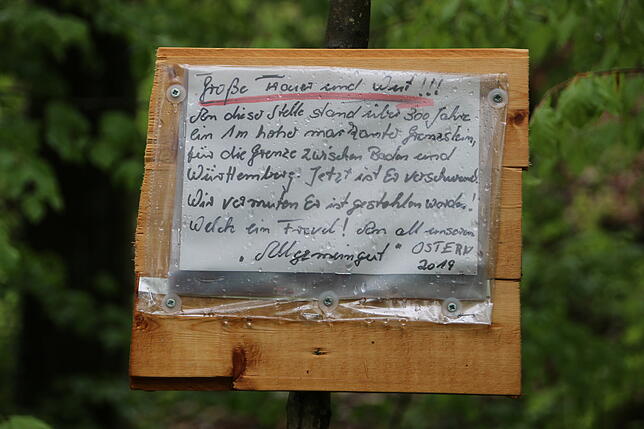 Große Trauer und Wut!!!
An dieser Stelle stand über 300 Jahre
ein 1m hoher markanter Grenzstein,
für die Grenze zwischen Baden und
Württemberg. Jetzt ist Er verschwunden.
Wir vermuten Er ist gestohlen worden!
Welch ein Frevel! An all unserem
"Allgemeingut" OSTERN
2019